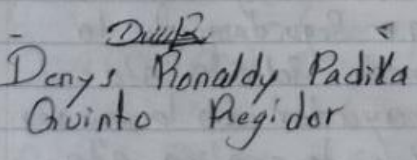 Denys Ronaldy Padilla
Quinto Regidor